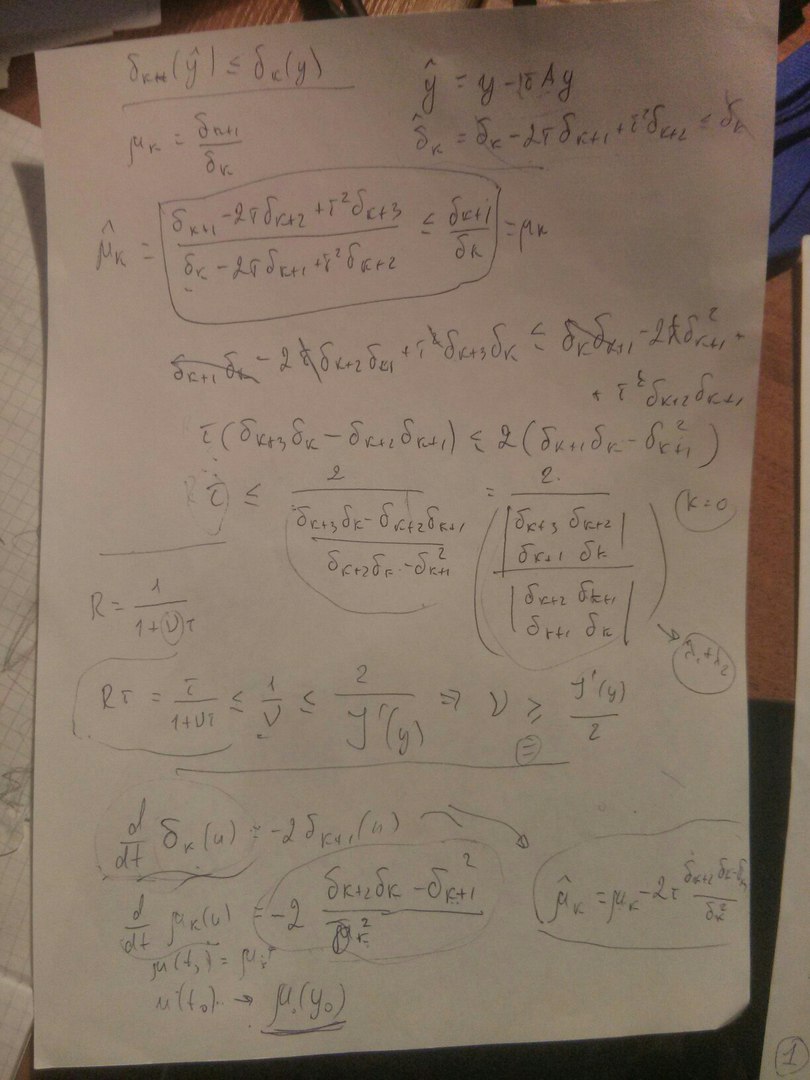 δₖ₊₁(ŷ) ≤ δₖ(y)
ŷ = y - τAy
μₖ = δₖ₊₁/δₖ
δ̂ₖ = δₖ - 2τδₖ₊₁ + τ²δₖ₊₂ ≤ δₖ
μ̂ₖ = (δₖ₊₁ - 2τδₖ₊₂ + τ²δₖ₊₃)/(δₖ - 2τδₖ₊₁ + τ²δₖ₊₂) ≤ δₖ₊₁/δₖ = μₖ
δₖ₊₁δₖ - 2τδₖ₊₂δₖ₊₁ + τ²δₖ₊₃δₖ ≤ δₖδₖ₊₁ - 2τδₖ₊₁² +
+ τ²δₖ₊₂δₖ₊₁
τ(δₖ₊₃δₖ - δₖ₊₂δₖ₊₁) ≤ 2(δₖ₊₁δₖ - δₖ₊₁²)
τ ≤ 2/((δₖ₊₃δₖ - δₖ₊₂δₖ₊₁)/(δₖ₊₂δₖ - δₖ₊₁²)) = 2/(|δₖ₊₃ δₖ₊₂; δₖ₊₁ δₖ|/|δₖ₊₂ δₖ₊₁; δₖ₊₁ δₖ|) (k=0)
R = 1/(1+ντ)
→ λ₁+λ₂
Rτ = τ/(1+ντ) ≤ 1/ν ≤ 2/J'(y) ⇒ ν ≥ J'(y)/2
(=)
d/dt δₖ(u) = -2δₖ₊₁(u)
d/dt μₖ(u) = -2 (δₖ₊₂δₖ - δₖ₊₁²)/δₖ²
μ̂ₖ = μₖ - 2τ (δₖ₊₂δₖ - δₖ)/δₖ²
u(t₀) → μ₀(y₀)
1